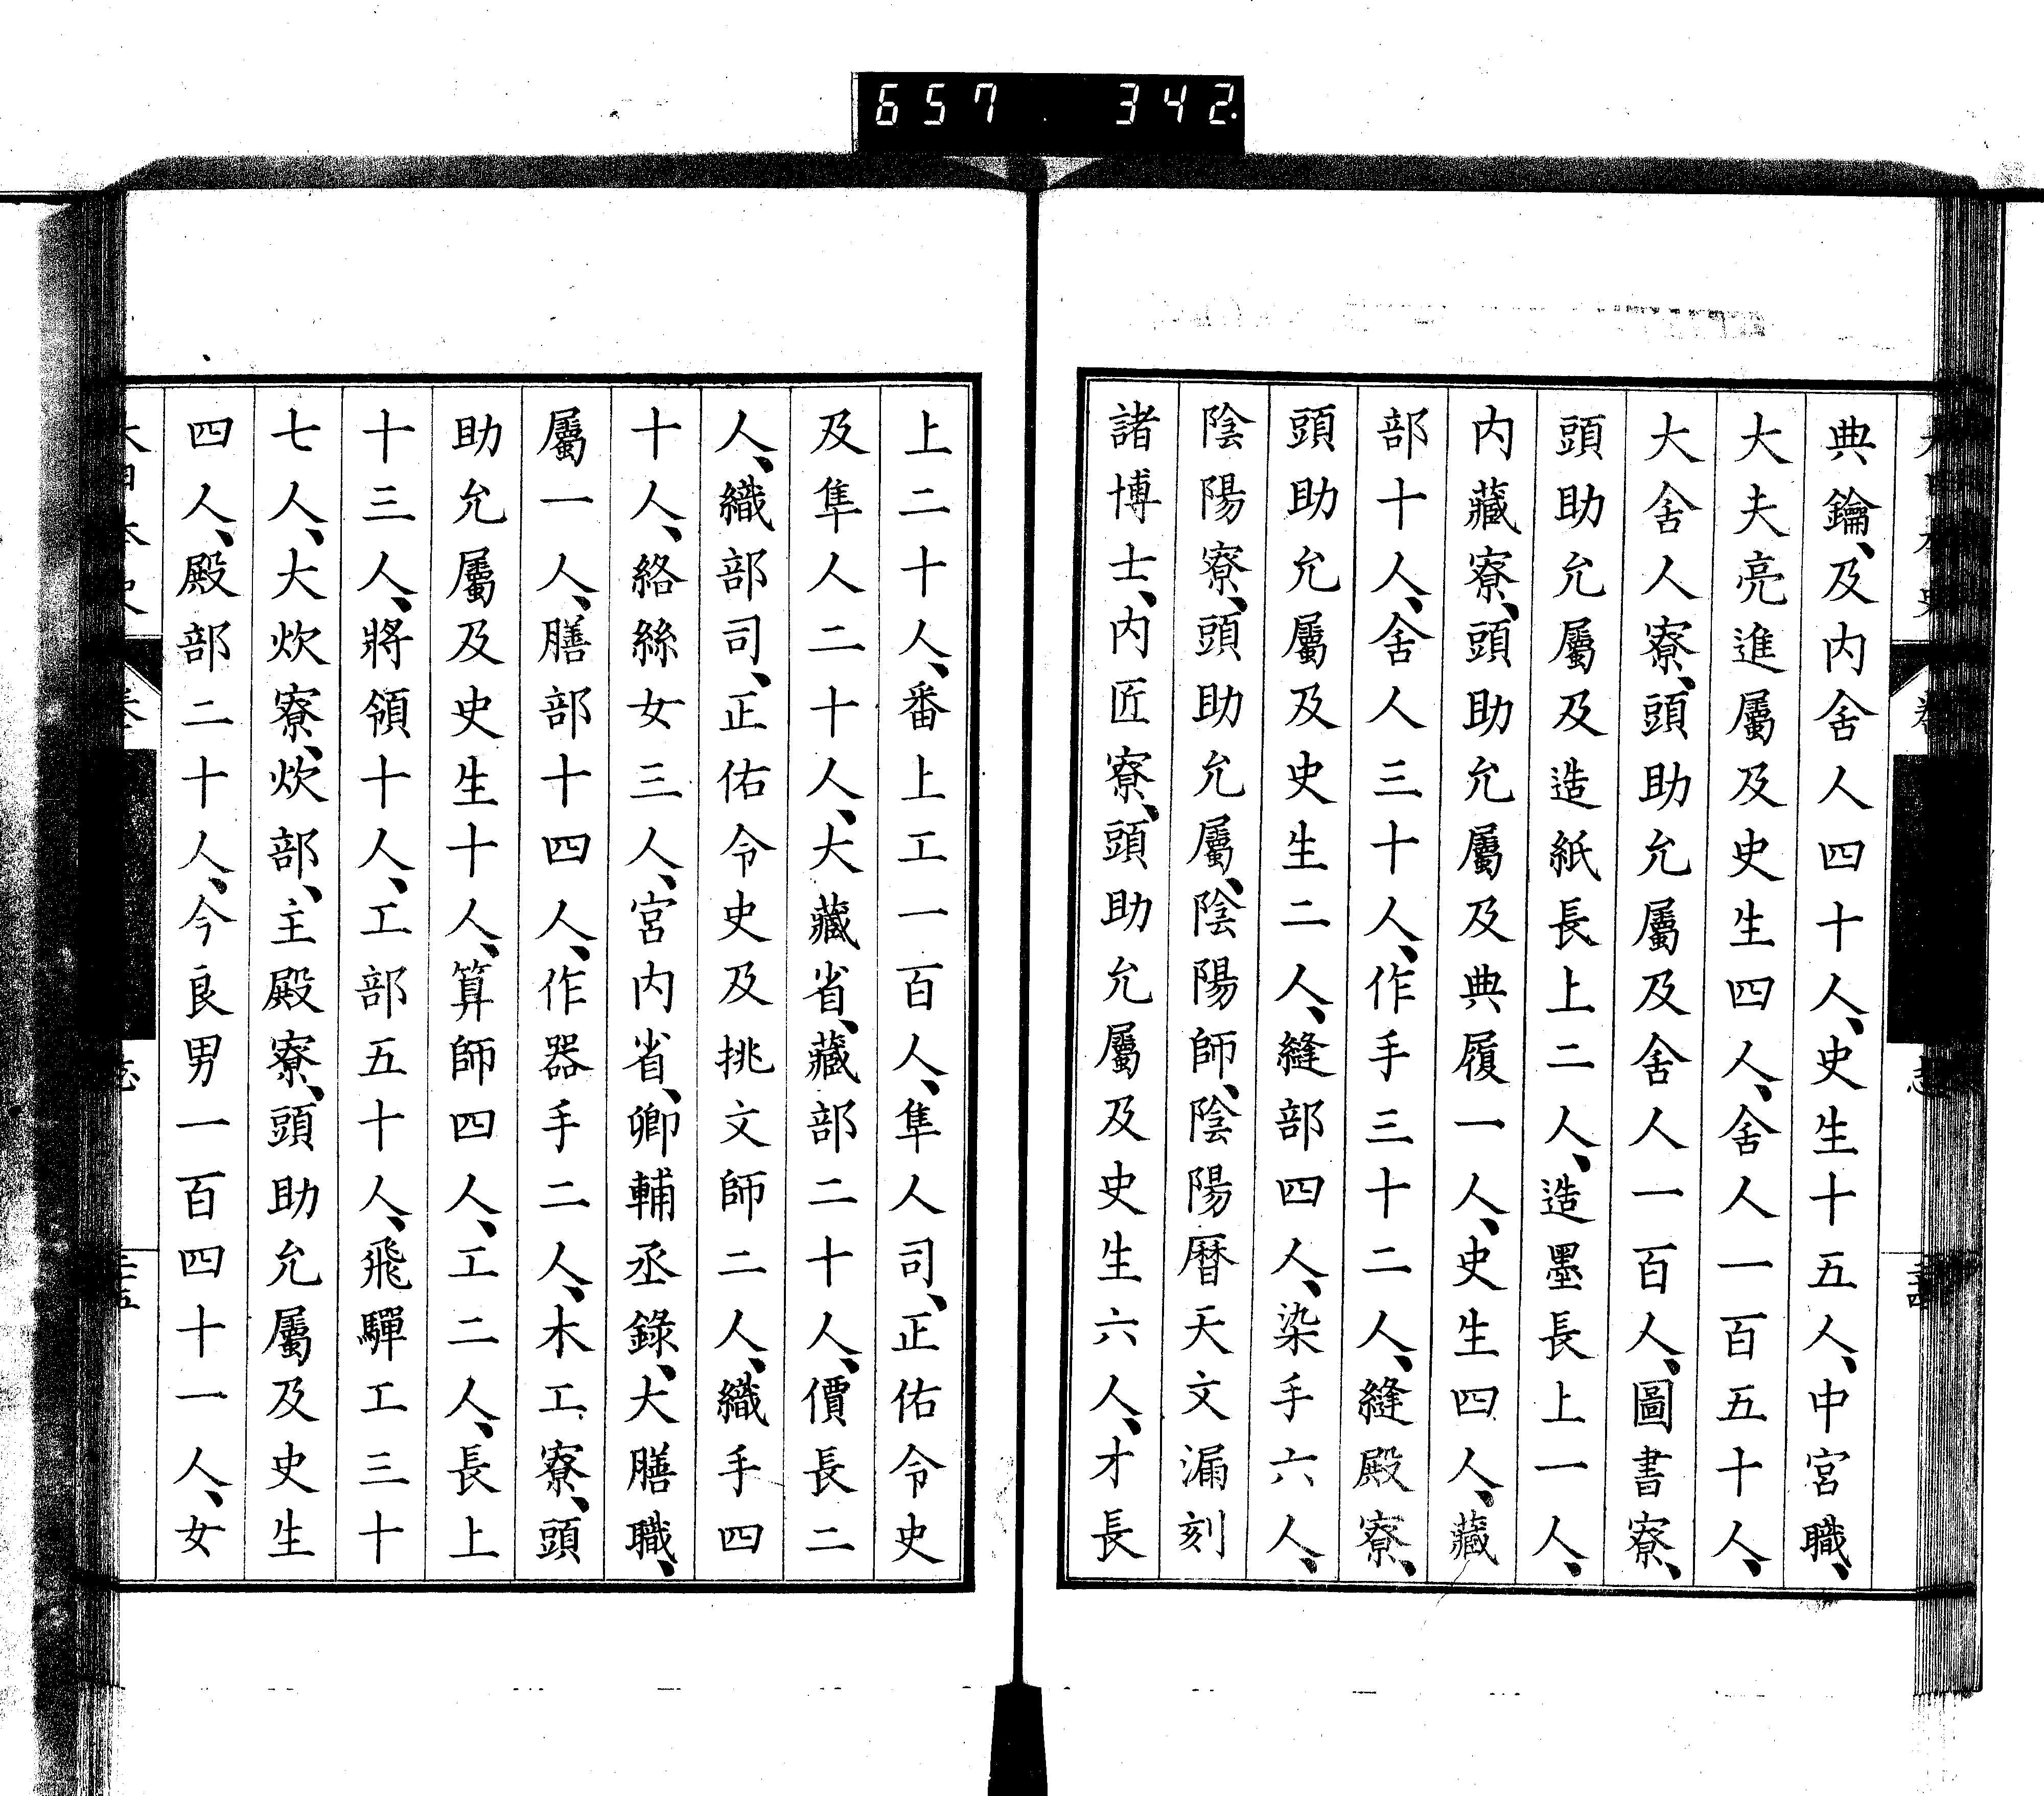 657 342
典鑰、及内舍人四十人、史生十五人、中宮職、
大夫亮進屬及史生四人、舍人一百五十人、
大舍人寮、頭助允屬及舍人一百人、圖書寮、
頭助允屬及造紙長上二人、造墨長上一人、
内藏寮、頭助允屬及典履一人、史生四人、藏
部十人、舍人三十人、作手三十二人、縫殿寮、
頭助允屬及史生二人、縫部四人、染手六人、
陰陽寮、頭助允屬、陰陽師、陰陽暦天文漏刻
諸博士、内匠寮、頭助允屬及史生六人、才長
上二十人、番上工一百人、隼人司、正佑令史
及隼人二十人、大藏省、藏部二十人、價長二
人、織部司、正佑令史及挑文師二人、織手四
十人、絡絲女三人、宮内省、卿輔丞錄、大膳職、
屬一人、膳部十四人、作器手二人、木工寮、頭
助允屬及史生十人、算師四人、工二人、長上
十三人、將領十人、工部五十人、飛驒工三十
七人、大炊寮、炊部、主殿寮、頭助允屬及史生
四人、殿部二十人、今良男一百四十一人、女